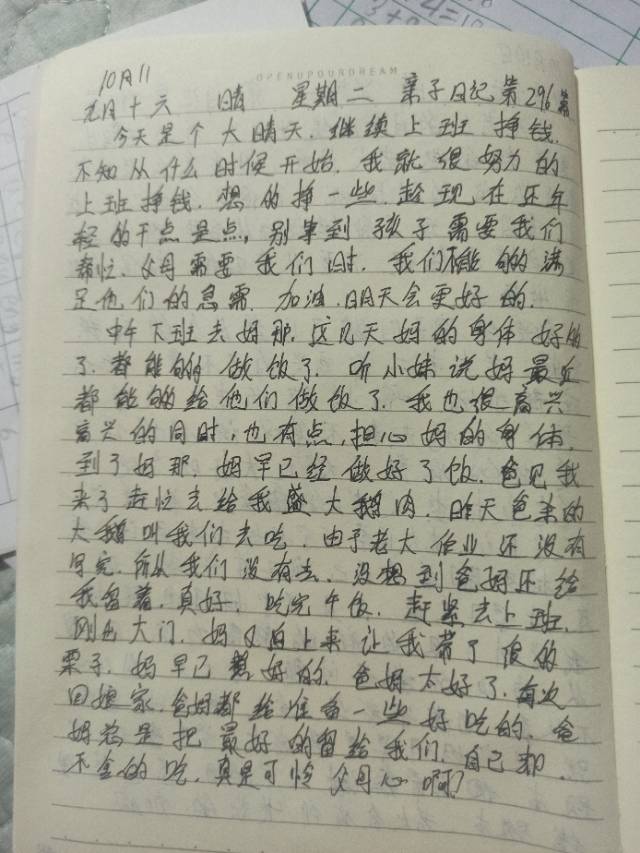 10月11
OPENUPOURDREAM
九月十六 晴 星期二 亲子日记第296篇
今天是个大晴天.继续上班 挣钱.
不知从什么时候开始.我就很努力的
上班挣钱.想的挣一些.趁现在还年
轻的干点是点,别等到孩子需要我们
帮忙.父母需要我们时.我们不能够的满
足他们的急需.加油.明天会更好的.
中午下班去妈那.这几天妈的身体好的
了.都能够做饭了.听小妹说妈最近
都能够给他们做饭了.我也很高兴
高兴的同时,也有点,担心妈的身体.
到了妈那.妈早已经做好了饭.爸见我
来了赶忙去给我盛大鹅肉.昨天爸杀的
大鹅叫我们去吃.由于老大作业还没有
写完.所以我们没有去.没想到爸妈还给
我留着.真好.吃完午饭.赶紧去上班.
刚出大门.妈又追上来让我带了很的
栗子.妈早已煮好的.爸妈太好了.每次
回娘家.爸妈都给准备一些好吃的.爸
妈总是把最好的留给我们.自己却.
不舍的吃.真是可怜父母心啊?